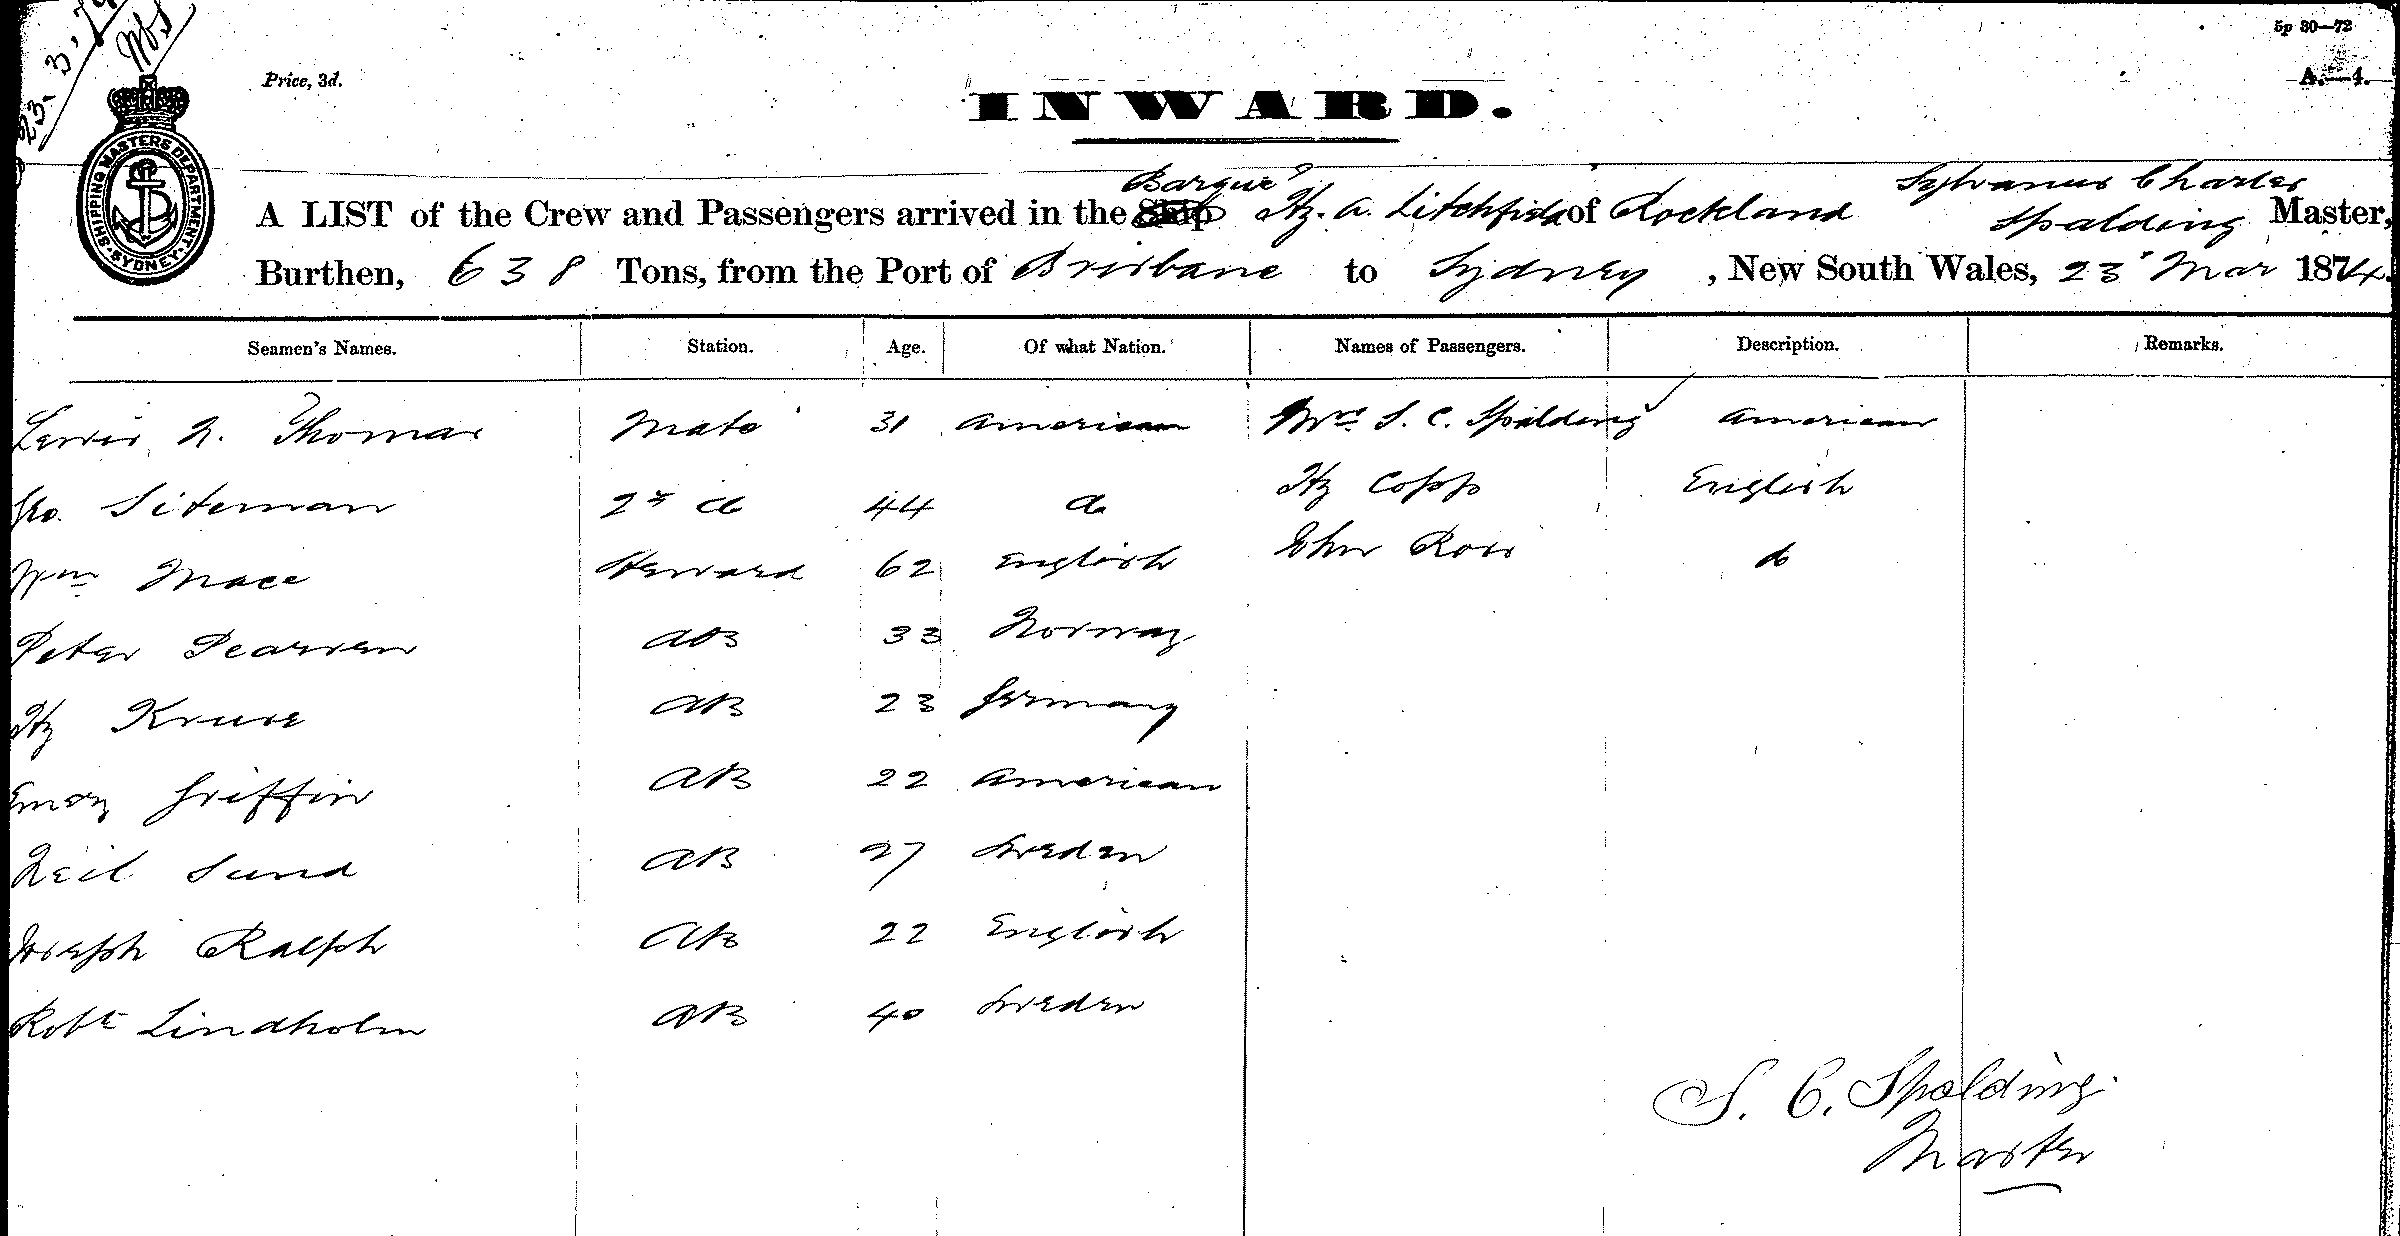 23.3.74
5p 30—72
Price, 3d.
A.—4.
INWARD.
SHIPPING MASTERS DEPARTMENT SYDNEY
Barque Sylvanus Charles
A LIST of the Crew and Passengers arrived in the Ship Hy. A. Litchfield of Rockland Spalding Master,
Burthen, 638 Tons, from the Port of Brisbane to Sydney, New South Wales, 23 Mar 1874.
Seamen's Names. Station. Age. Of what Nation. Names of Passengers. Description. Remarks.
Lewis N. Thomas Mate 31 American Mrs S. C. Spalding American
Geo. Siteman 2nd do 44 do Hy Copp English
Wm Mace Steward 62 English John Ross do
Peter Pearsen AB 33 Norway
Hy Kruse AB 23 Germany
Emory Griffin AB 22 American
Neil Sund AB 27 Sweden
Joseph Ralph AB 22 English
Robt Lindholm AB 40 Sweden
S. C. Spalding
Master